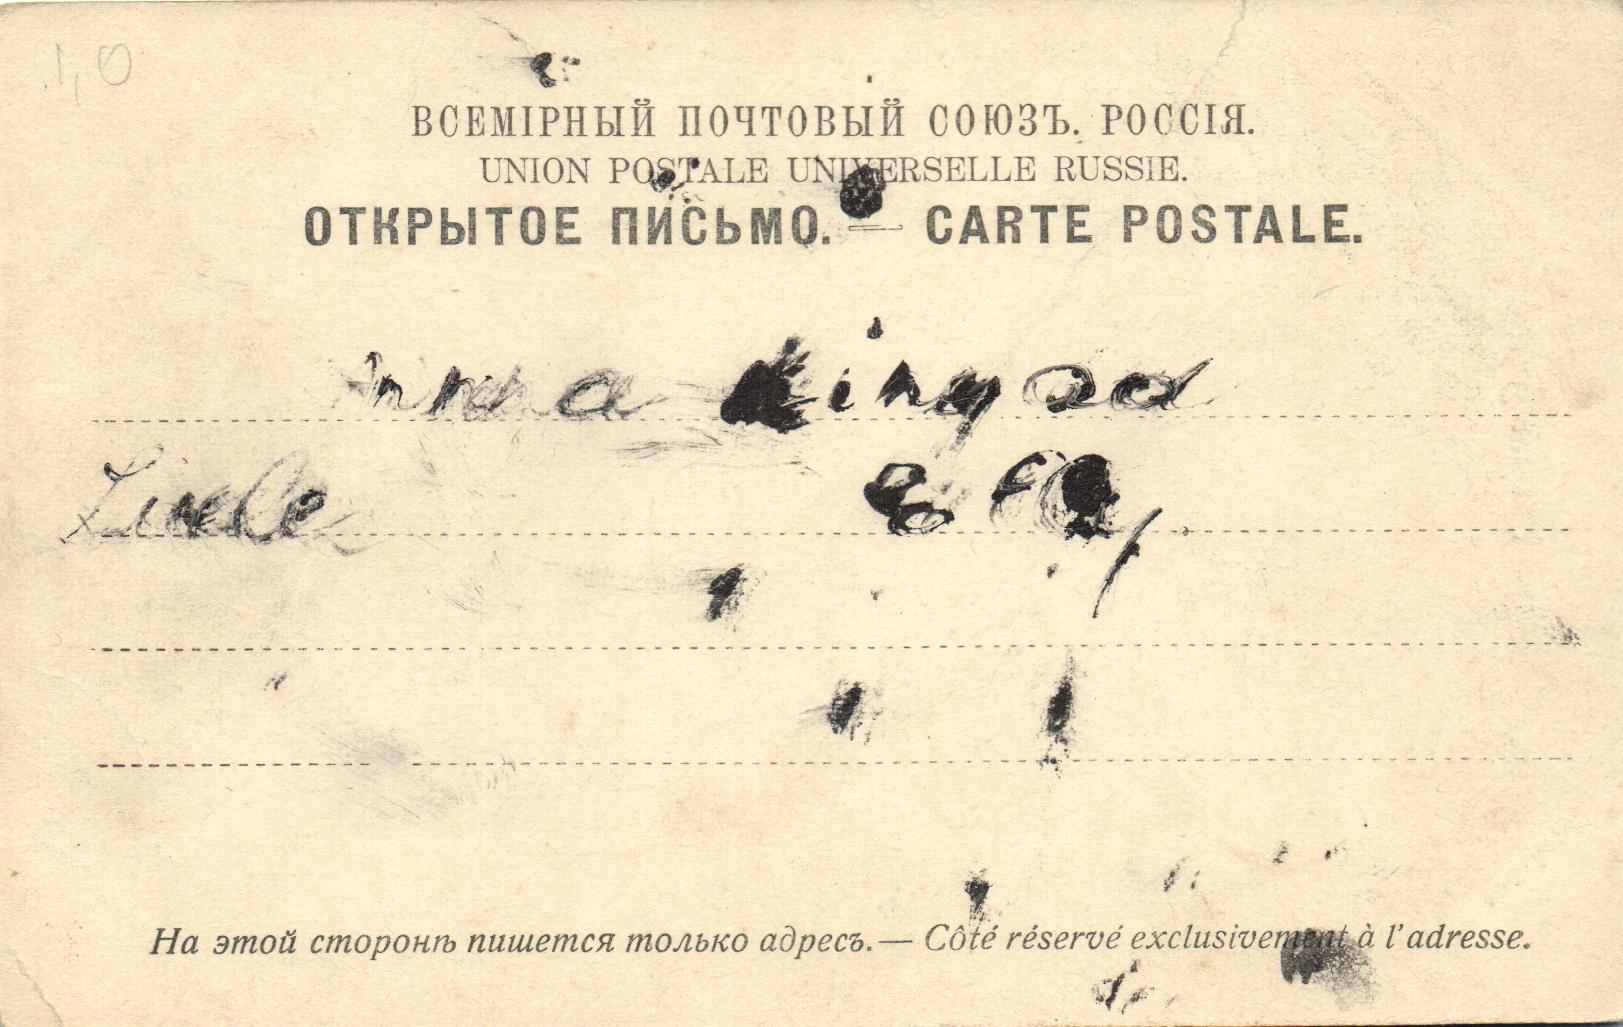 1,0
ВСЕМІРНЫЙ ПОЧТОВЫЙ СОЮЗЪ. РОССІЯ.
UNION POSTALE UNIVERSELLE RUSSIE.
ОТКРЫТОЕ ПИСЬМО. — CARTE POSTALE.
На этой сторонѣ пишется только адресъ. — Côté réservé exclusivement à l'adresse.